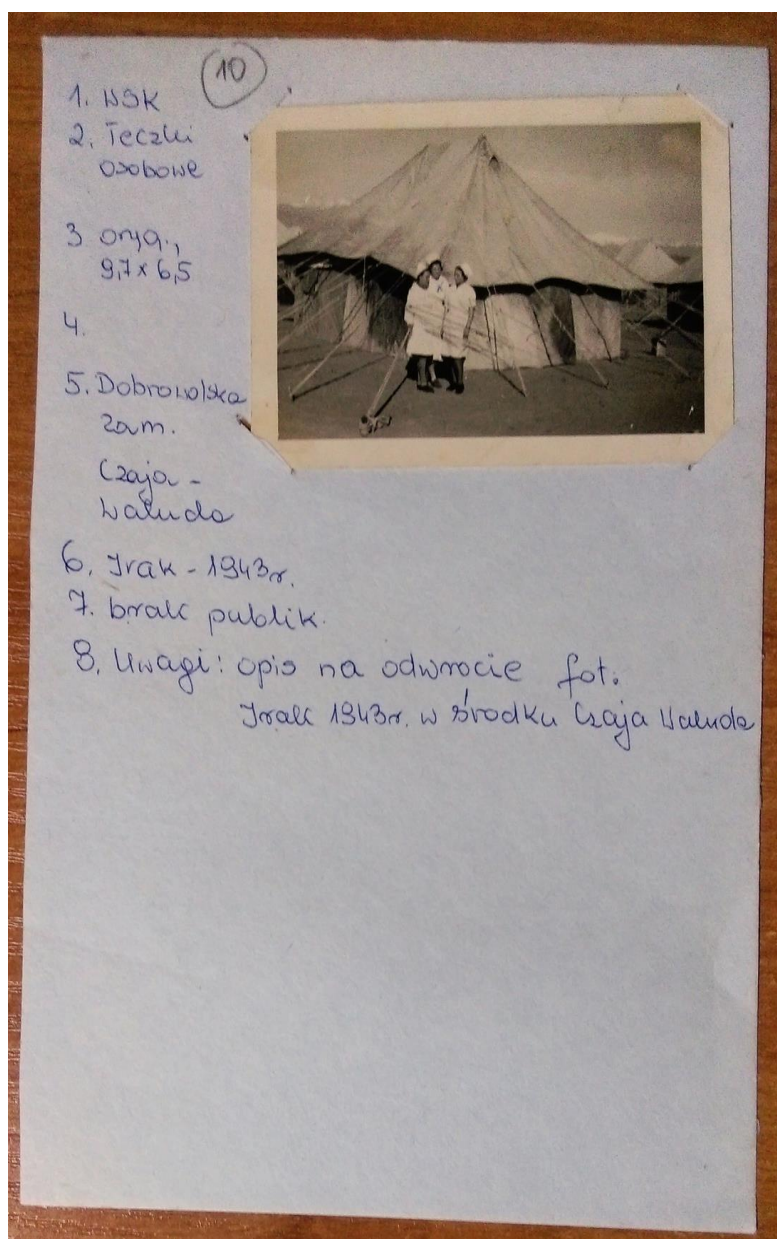 10
1. WSK
2. Teczki
osobowe
3 oryg.,
9,7x6,5
4.
5. Dobrowolska
zam.
Czaja -
Waluda
6. Irak - 1943r.
7. brak publik.
8. Uwagi: opis na odwrocie fot.
Irak 1943r. w środku Czaja Waluda